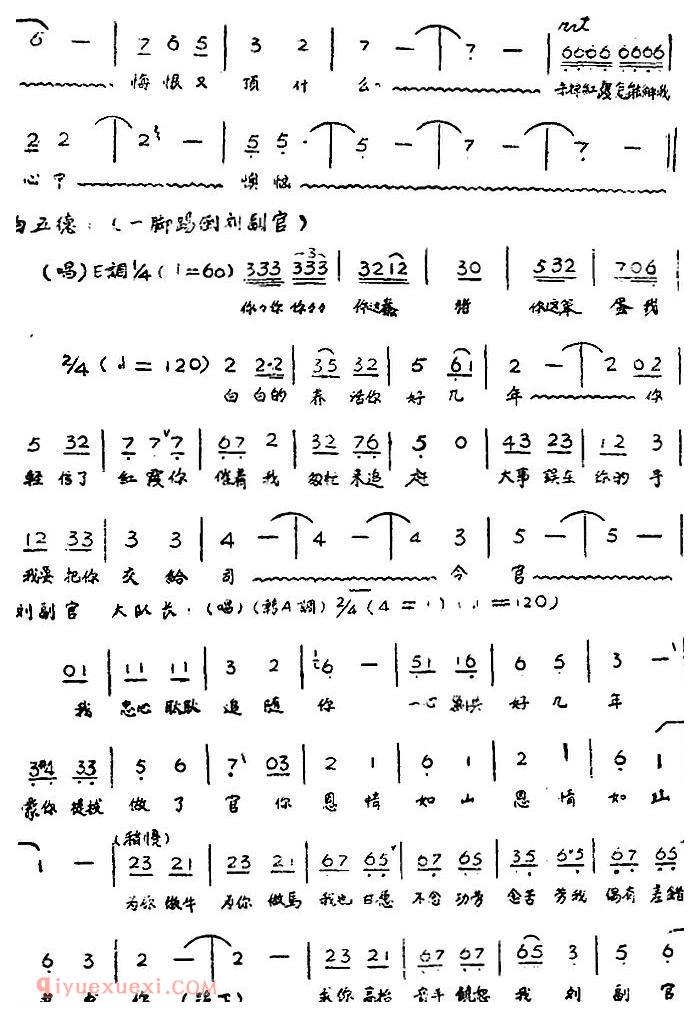 6 — | 7 6 5 | 3 2 | 7 — | 7 — | 6666 6666
悔恨又 顶什 么
2 2 | 2 — | 5 5 · | 5 — | 7 — | 7 — ‖
心中 懊恼
五德：（一脚踢倒刘副官）
（唱）E調1/4（♩=60）333 333 | 3212 | 30 | 532 | 706
你这蠢 你这笨 蛋我
2/4（♩=120）2 2·2 | 35 32 | 5 61 | 2 — | 2 02
白白的 养活你 好几 年 你
5 32 | 7 7 7 | 67 2 | 32 76 | 5 0 | 43 23 | 12 3
轻信了 红霞你 催着我 匆忙来追赶 大事误在 你的手
12 33 | 3 3 | 4 — | 4 — | 4 3 | 5 — | 5 —
我要把你 交给 司 令 官
刘副官 大队长：（唱）（转A調）2/4（4=1）（♩=120）
01 | 11 11 | 3 2 | 6 — | 51 16 | 6 5 | 3 —
我 忠心耿耿 追随 你 一心 好几 年
33 | 5 6 | 7 03 | 2 1 | 6 1 | 2 1 | 6 1
蒙你提拔 做了 官你 恩情 如山 恩情 如山
（稍慢）
1 — | 23 21 | 23 21 | 67 65 | 67 65 | 35 65 | 67 65
为你做牛 为你做馬 我也 不念功劳 念苦劳我 偶有差錯
6 3 | 2 — | 2 — | 23 21 | 67 67 | 65 3 | 5 6
求你高抬 贵手饒恕 我刘 副官
qiyuexuexi.com